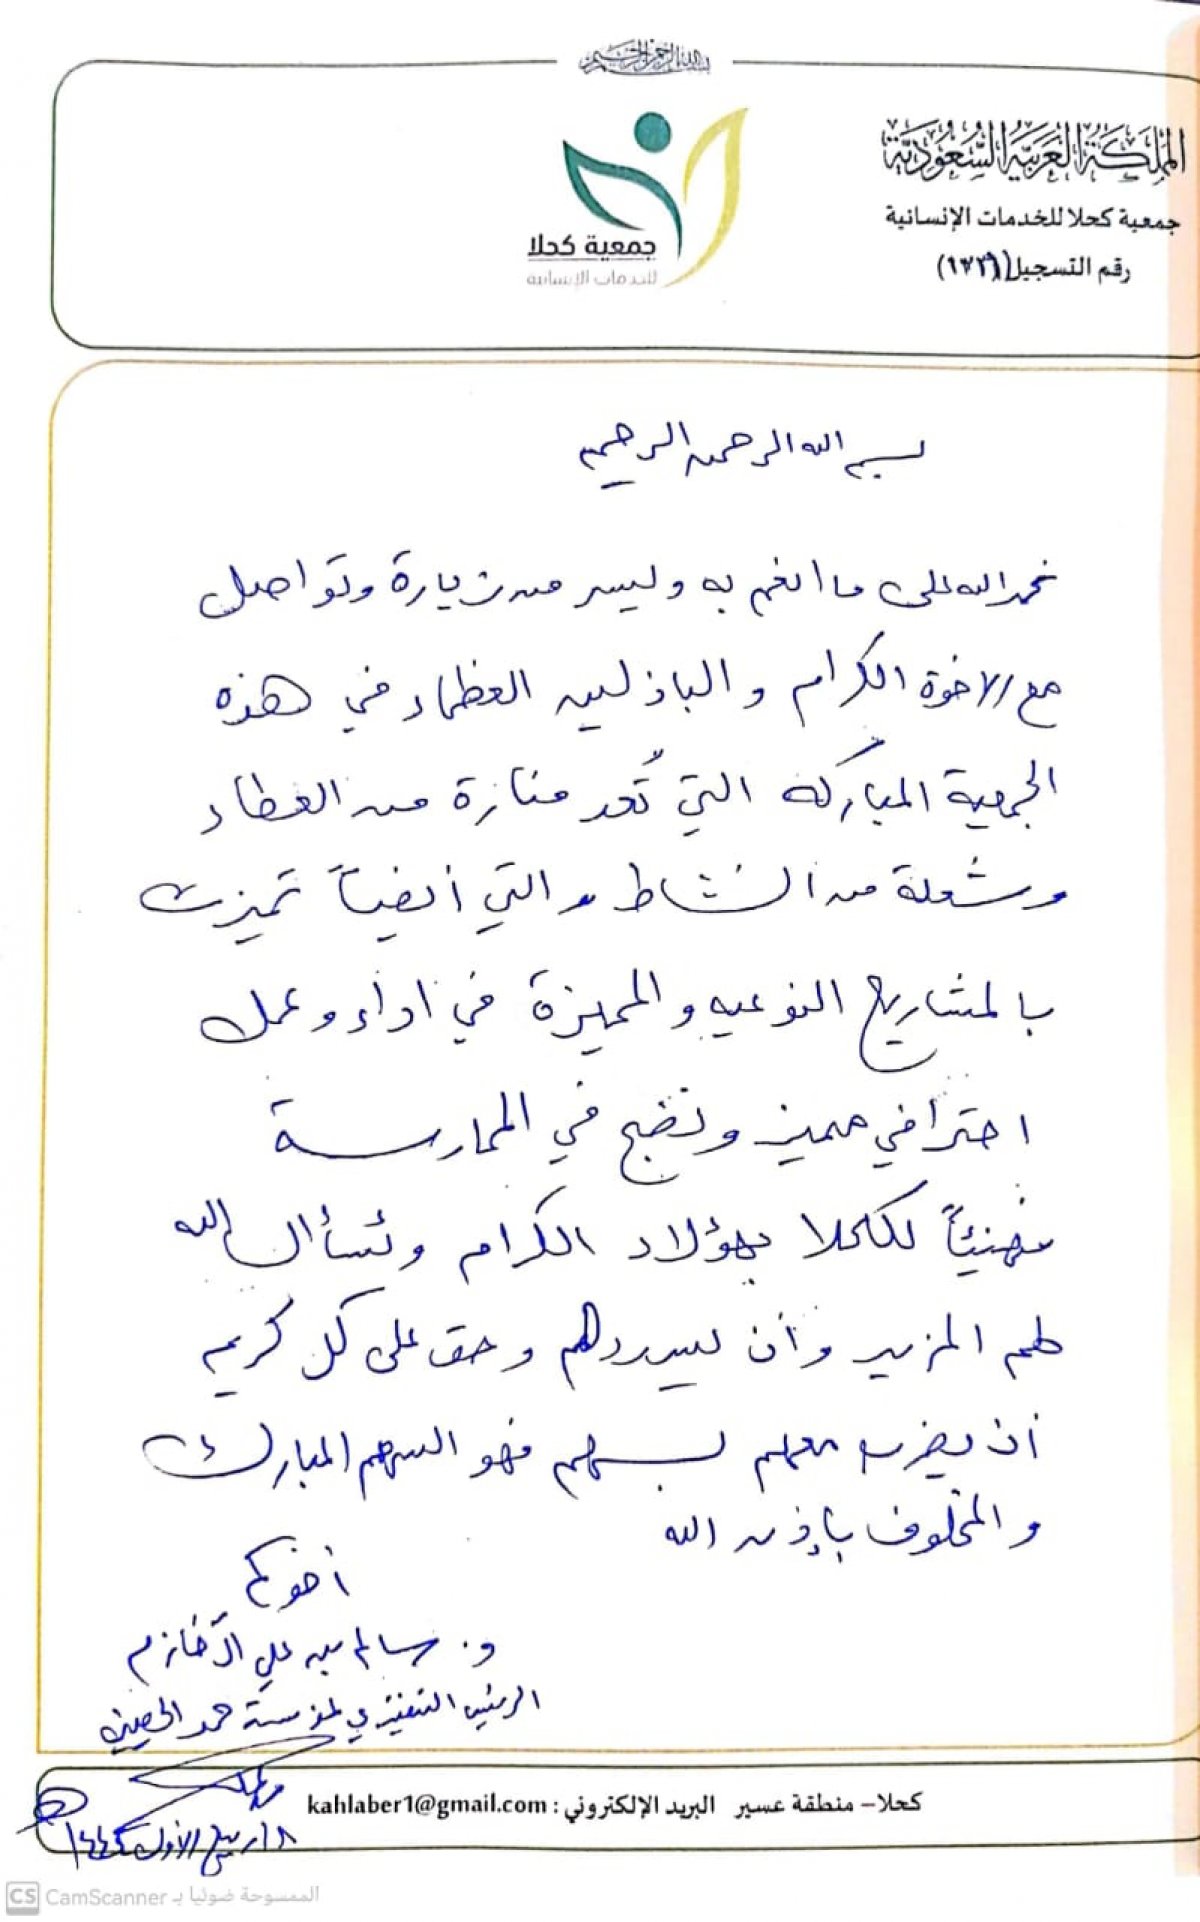 بسم الله الرحمن الرحيم
المملكة العربية السعودية
جمعية كحلا للخدمات الإنسانية
رقم التسجيل
جمعية كحلا
للخدمات الإنسانية
بسم الله الرحمن الرحيم
نحمد الله على ما انعم به ويسر من زيارة وتواصل
مع الاخوة الكرام والباذلين العظماء في هذه
الجمعية المباركه التي تُعد منارة من العطاء
وشعلة من النشاط والتي أيضاً تميزت
بالمشاريع النوعيه والمميزة في اداء وعمل
احترافي مميز ونضج في الممارسة
فهنيئاً لكحلا بهؤلاء الكرام ونسأل الله
لهم المزيد وأن يسددهم وحق على كل كريم
أن يضرب معهم بسهم فهو السهم المبارك
والمخلوف بإذن الله
أخوكم
د. سالم بن علي آل خازم
الرئيس التنفيذي لمؤسسة حمد الحصيني
ربيع الأول
كحلا– منطقة عسير البريد الإلكتروني : kahlaber1@gmail.com
CS CamScanner الممسوحة ضوئيا بـ